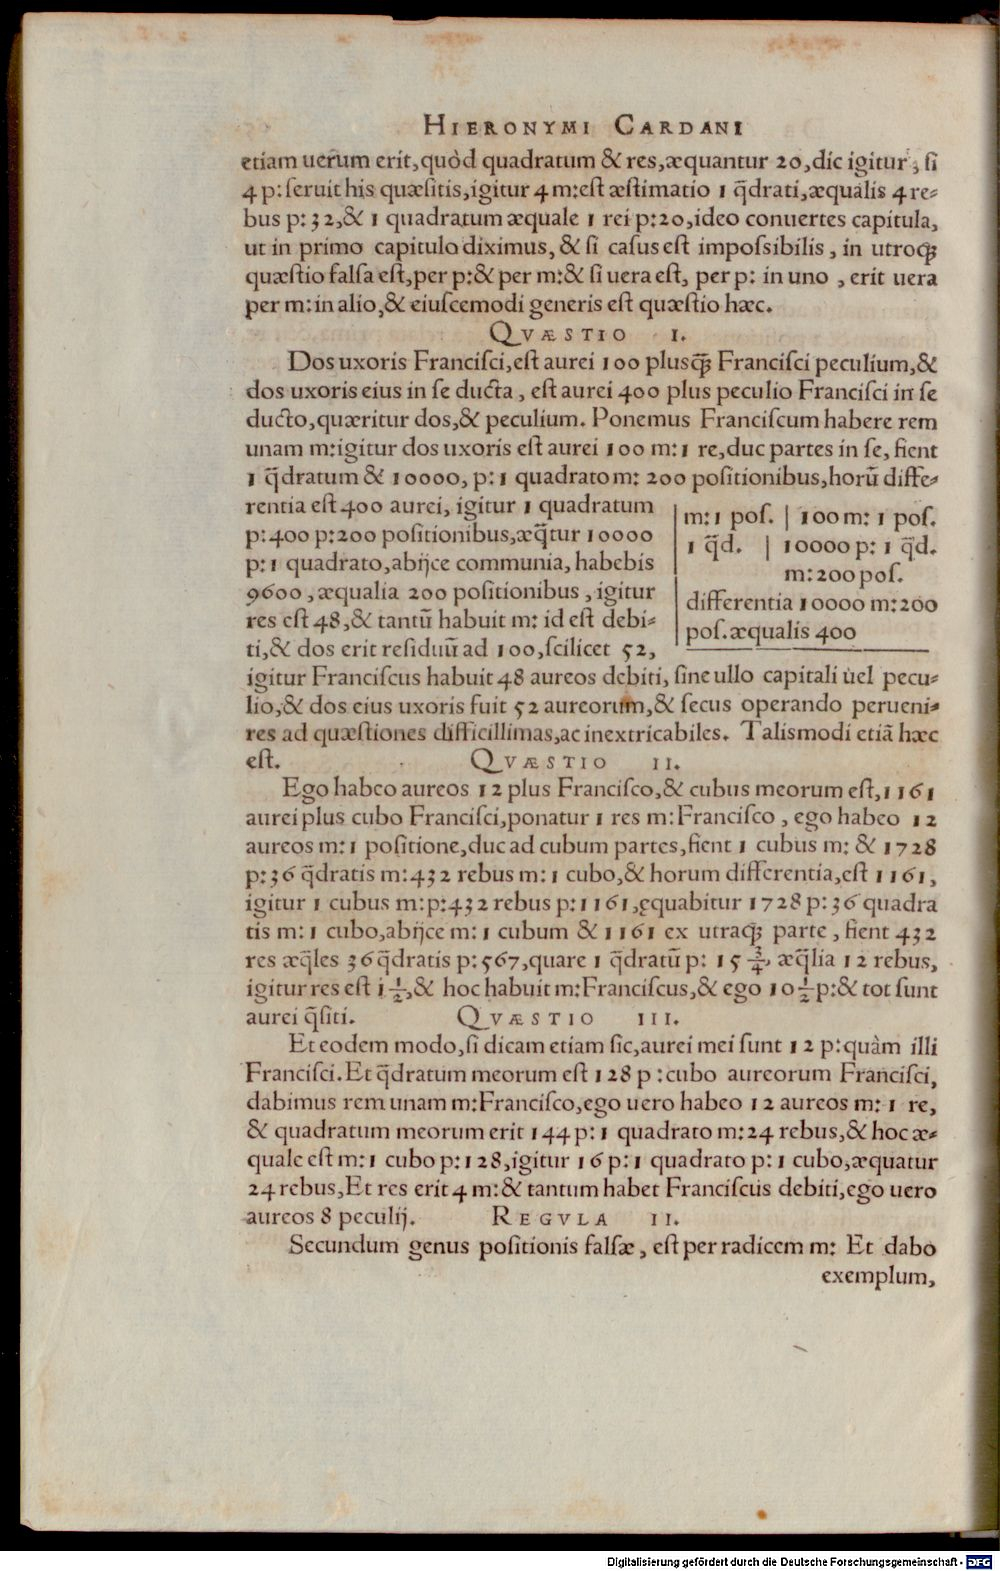 HIERONYMI CARDANI
etiam uerum erit, quòd quadratum & res, æquantur 20, dic igitur, si
4 p: seruit his quæsitis, igitur 4 m: est æstimatio 1 q̃drati, æqualis 4 re-
bus p: 32, & 1 quadratum æquale 1 rei p: 20, ideo conuertes capitula,
ut in primo capitulo diximus, & si casus est impossibilis, in utroq꜒
quæstio falsa est, per p: & per m: & si uera est, per p: in uno, erit uera
per m: in alio, & eiuscemodi generis est quæstio hæc.
QVÆSTIO I.
Dos uxoris Francisci, est aurei 100 plusq̃꜒ Francisci peculium, &
dos uxoris eius in se ducta, est aurei 400 plus peculio Francisci in se
ducto, quæritur dos, & peculium. Ponemus Franciscum habere rem
unam m: igitur dos uxoris est aurei 100 m: 1 re, duc partes in se, fient
1 q̃dratum & 10000, p: 1 quadrato m: 200 positionibus, horũ diffe-
rentia est 400 aurei, igitur 1 quadratum
p: 400 p: 200 positionibus, æq̃tur 10000
p: 1 quadrato, abijce communia, habebis
9600, æqualia 200 positionibus, igitur
res est 48, & tantũ habuit m: id est debi-
ti, & dos erit residuũ ad 100, scilicet 52,
m: 1 pos. | 100 m: 1 pos.
1 q̃d. | 10000 p: 1 q̃d.
m: 200 pos.
differentia 10000 m: 200
pos. æqualis 400
igitur Franciscus habuit 48 aureos debiti, sine ullo capitali uel pecu-
lio, & dos eius uxoris fuit 52 aureorum, & secus operando perueni-
res ad quæstiones difficillimas, ac inextricabiles. Talismodi etiã hæc
est. QVÆSTIO II.
Ego habeo aureos 12 plus Francisco, & cubus meorum est, 1161
aurei plus cubo Francisci, ponatur 1 res m: Francisco, ego habeo 12
aureos m: 1 positione, duc ad cubum partes, fient 1 cubus m: & 1728
p: 36 q̃dratis m: 432 rebus m: 1 cubo, & horum differentia, est 1161,
igitur 1 cubus m: p: 432 rebus p: 1161, ęquabitur 1728 p: 36 quadra
tis m: 1 cubo, abijce m: 1 cubum & 1161 ex utraq꜒ parte, fient 432
res æq̃les 36 q̃dratis p: 567, quare 1 q̃dratũ p: 15 3/4, æq̃lia 12 rebus,
igitur res est 1 1/2, & hoc habuit m: Franciscus, & ego 10 1/2 p: & tot sunt
aurei q̃siti. QVÆSTIO III.
Et eodem modo, si dicam etiam sic, aurei mei sunt 12 p: quàm illi
Francisci. Et q̃dratum meorum est 128 p: cubo aureorum Francisci,
dabimus rem unam m: Francisco, ego uero habeo 12 aureos m: 1 re,
& quadratum meorum erit 144 p: 1 quadrato m: 24 rebus, & hoc æ-
quale est m: 1 cubo p: 128, igitur 16 p: 1 quadrato p: 1 cubo, æquatur
24 rebus, Et res erit 4 m: & tantum habet Franciscus debiti, ego uero
aureos 8 peculij. REGVLA II.
Secundum genus positionis falsæ, est per radicem m: Et dabo
exemplum,
Digitalisierung gefördert durch die Deutsche Forschungsgemeinschaft - DFG